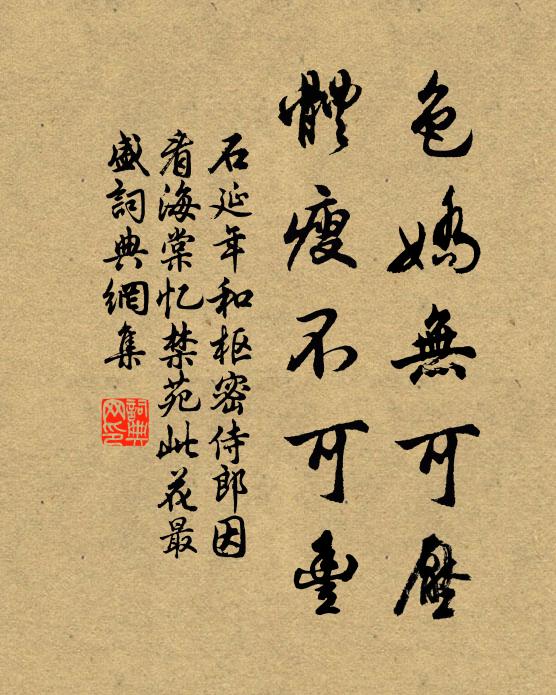 色嬌無可壓
體瘦不可豐
石延年和枢密侍郎因
看海棠忆禁苑此花最
盛詞典網集
詞典
网印